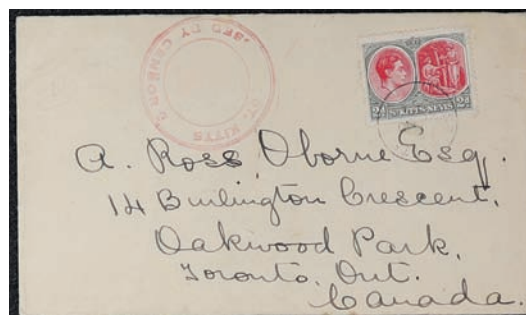 PASSED BY CENSOR
ST. KITTS
2d 2d
ST KITTS-NEVIS
A. Ross Oborne Esq.
14 Burlington Crescent,
Oakwood Park,
Toronto, Ont.
Canada.